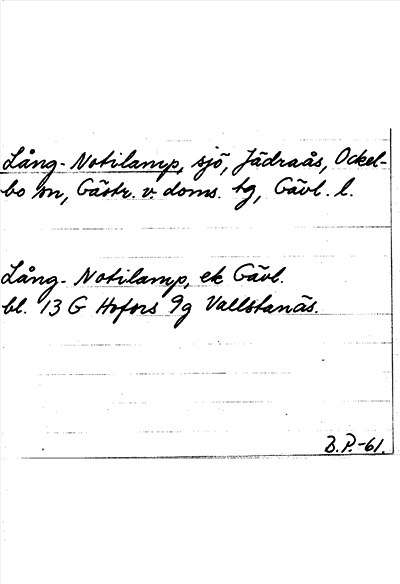 Lång-Notilamp, sjö, Jädraås, Ockel-
bo sn, Gästr. v. doms. tg, Gävl. l.
Lång-Notilamp, ek Gävl.
bl. 13 G Hofors 9g Vallstanäs.
B.P.-61.